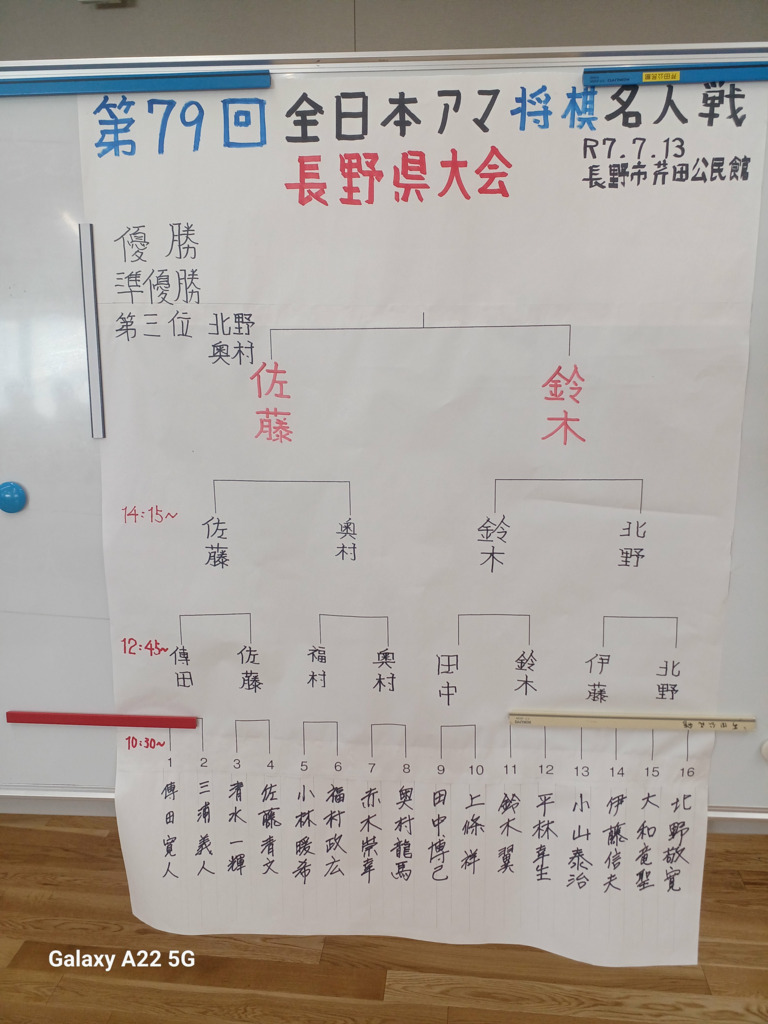 第79回 全日本アマ将棋名人戦
長野県大会
R7.7.13
長野市芹田公民館
優勝
準優勝
第三位 北野
奥村
佐藤 鈴木
14:15~ 佐藤 奥村 鈴木 北野
12:45~ 傳田 佐藤 福村 奥村 田中 鈴木 伊藤 北野
10:30~
1 2 3 4 5 6 7 8 9 10 11 12 13 14 15 16
傳田寛人
三浦義人
清水一輝
佐藤清文
小林暖希
福村政広
赤木崇幸
奥村龍馬
田中博己
上條祥
鈴木翼
平林幸生
小山泰治
伊藤信夫
大和竜聖
北野敬寛
芹田公民館
Galaxy A22 5G